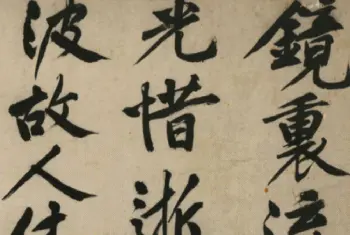 鏡裏流
光惜逝
波故人